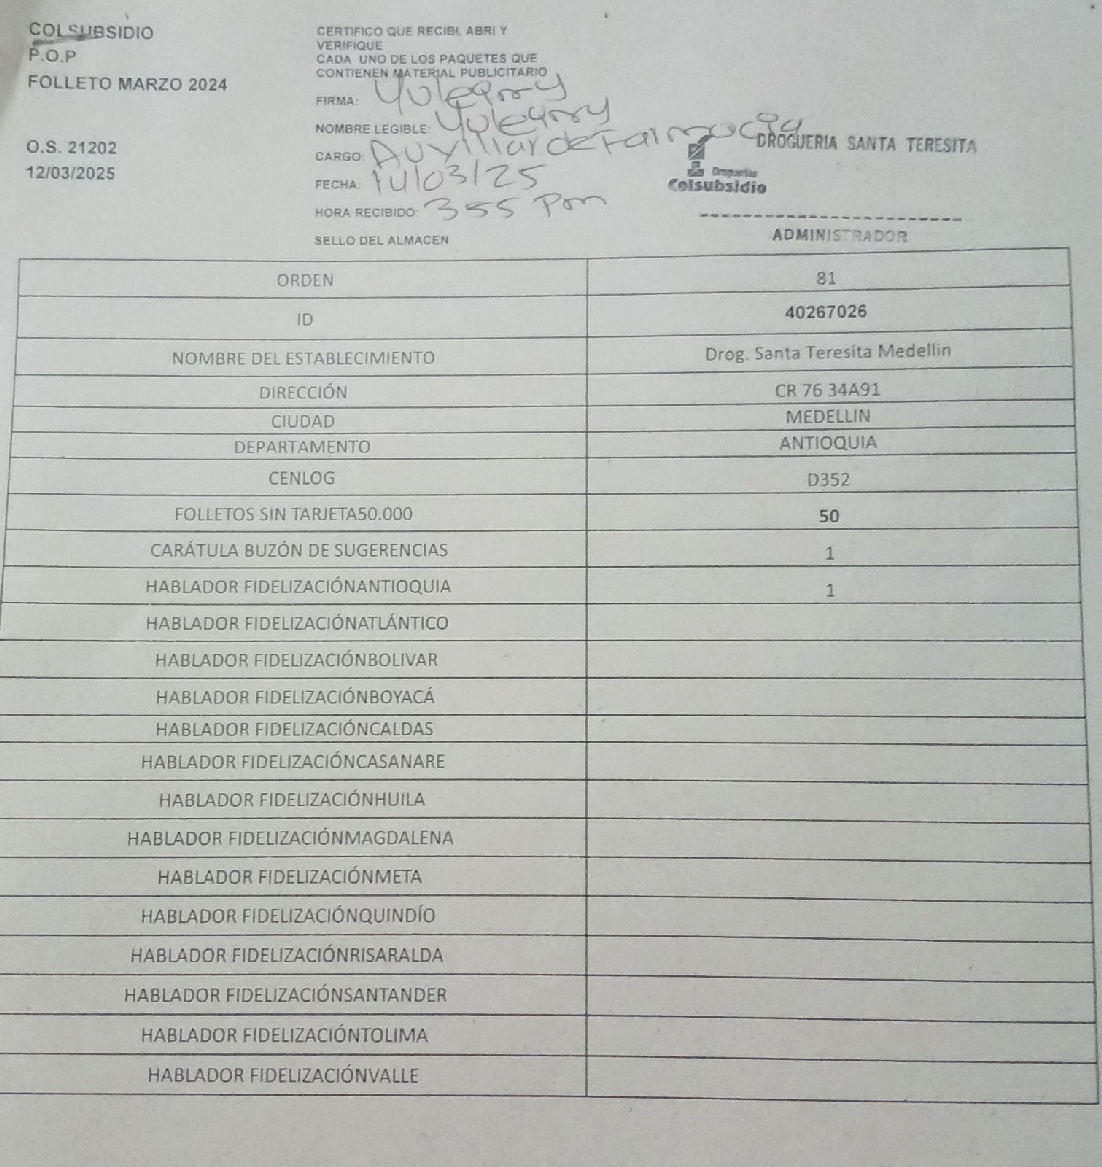 COLSUBSIDIO
P.O.P
FOLLETO MARZO 2024
O.S. 21202
12/03/2025
CERTIFICO QUE RECIBI, ABRI Y
VERIFIQUE
CADA UNO DE LOS PAQUETES QUE
CONTIENEN MATERIAL PUBLICITARIO
FIRMA: Yuleqny
NOMBRE LEGIBLE: Yuleqny
CARGO: Auxiliar de Farmacia
FECHA: 14/03/25
HORA RECIBIDO: 355 Pm
SELLO DEL ALMACEN
DROGUERIA SANTA TERESITA
Droguerías
Colsubsidio
ADMINISTRADOR
ORDEN 81
ID 40267026
NOMBRE DEL ESTABLECIMIENTO Drog. Santa Teresita Medellin
DIRECCIÓN CR 76 34A91
CIUDAD MEDELLIN
DEPARTAMENTO ANTIOQUIA
CENLOG D352
FOLLETOS SIN TARJETA50.000 50
CARÁTULA BUZÓN DE SUGERENCIAS 1
HABLADOR FIDELIZACIÓNANTIOQUIA 1
HABLADOR FIDELIZACIÓNATLÁNTICO
HABLADOR FIDELIZACIÓNBOLIVAR
HABLADOR FIDELIZACIÓNBOYACÁ
HABLADOR FIDELIZACIÓNCALDAS
HABLADOR FIDELIZACIÓNCASANARE
HABLADOR FIDELIZACIÓNHUILA
HABLADOR FIDELIZACIÓNMAGDALENA
HABLADOR FIDELIZACIÓNMETA
HABLADOR FIDELIZACIÓNQUINDÍO
HABLADOR FIDELIZACIÓNRISARALDA
HABLADOR FIDELIZACIÓNSANTANDER
HABLADOR FIDELIZACIÓNTOLIMA
HABLADOR FIDELIZACIÓNVALLE